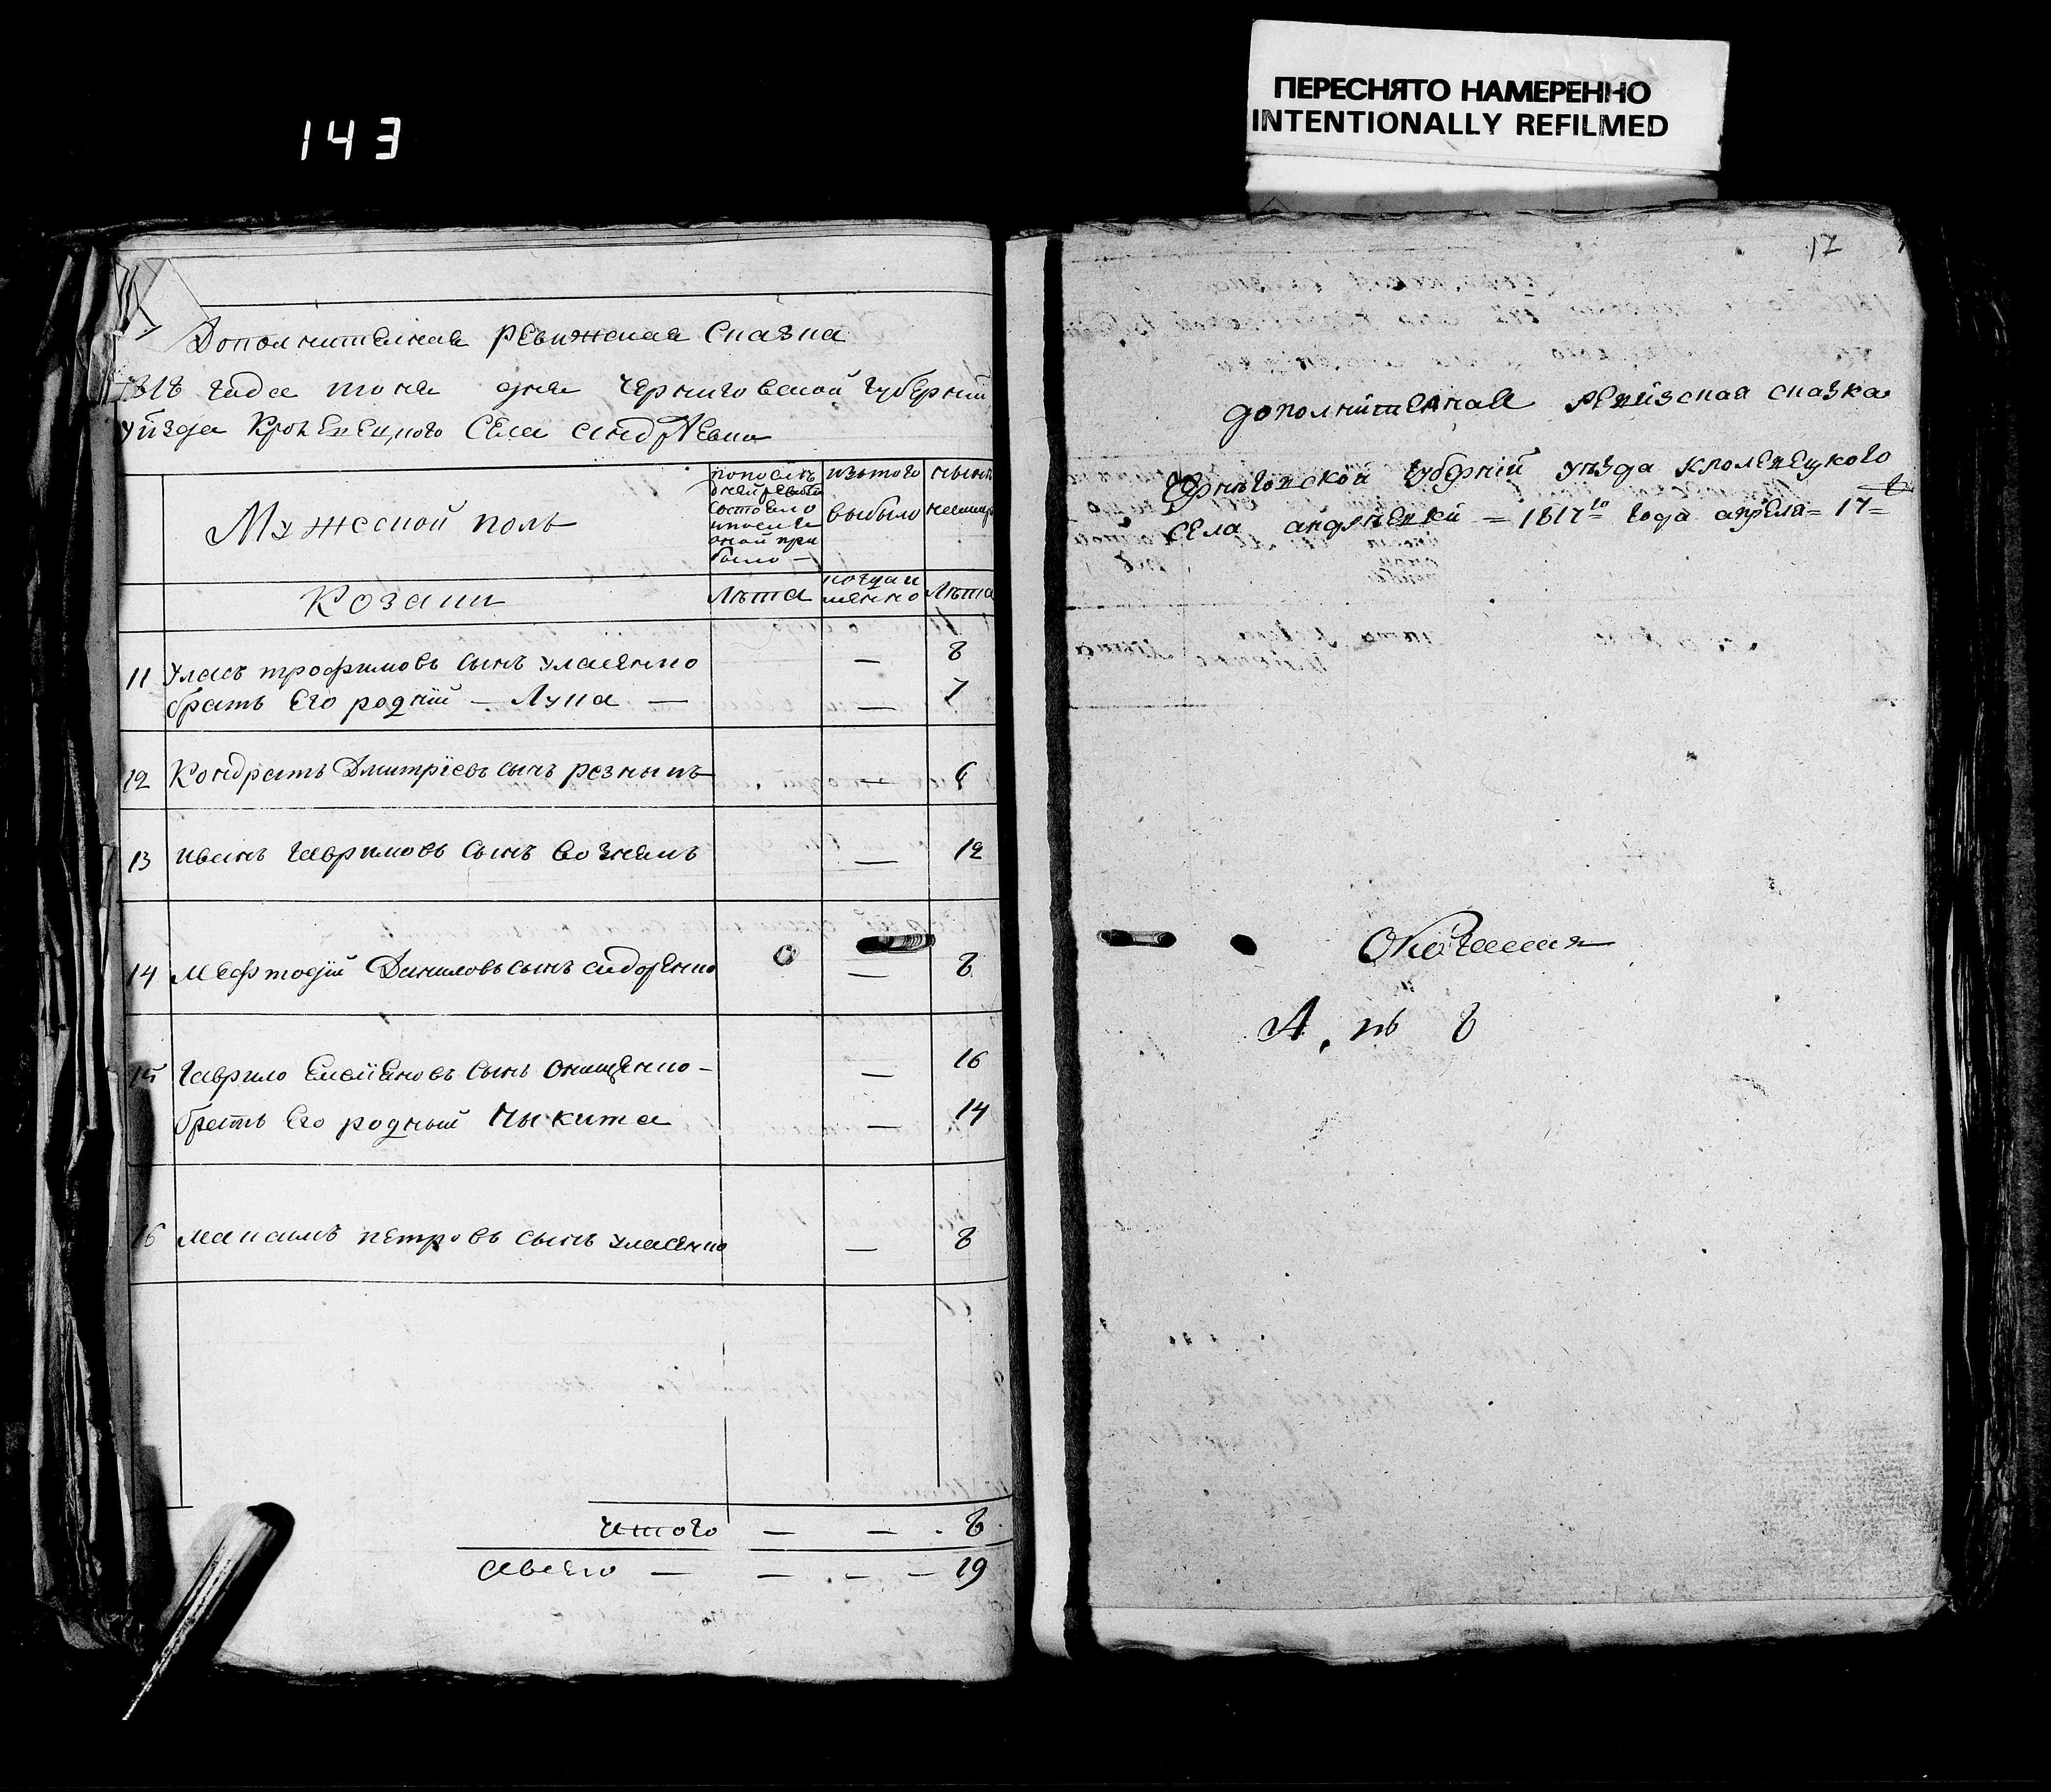 143
ПЕРЕСНЯТО НАМЕРЕННО
INTENTIONALLY REFILMED
Дополнителная ревижская сказка
1818 года мца дня Черниговской губерний
уйзда Кролевецкого села андреевки
Мужеской полъ
по последней ревизий состояло и после оной прибыло —
изътого выбыло
ныне налицо
Козаки
лѣта
когда имянно
лѣта
11 Уласъ трофимовъ сынъ уласенко — 8
братъ Его роднïй — Лука — — 7
12 Кондратъ Дмитрïевъ сынъ резникъ — 6
13 иванъ гавриловъ сынъ Вознякъ — 12
14 Мефтодiй Даниловъ сынъ сидоренко — 8
15 гаврило Емелïановъ сынъ Онищенко — 16
братъ Его родный Ныкита — 14
16 макъсимъ петровъ сынъ уласенко — 8
итого — — 8
авсего — — — — 19
17
дополнителная ревизская сказка
Чернѣговской губернiй уѣзда кролевецкого
села андреевки = 1817го года апреля = 17 =
О козакахъ
А. въ 8